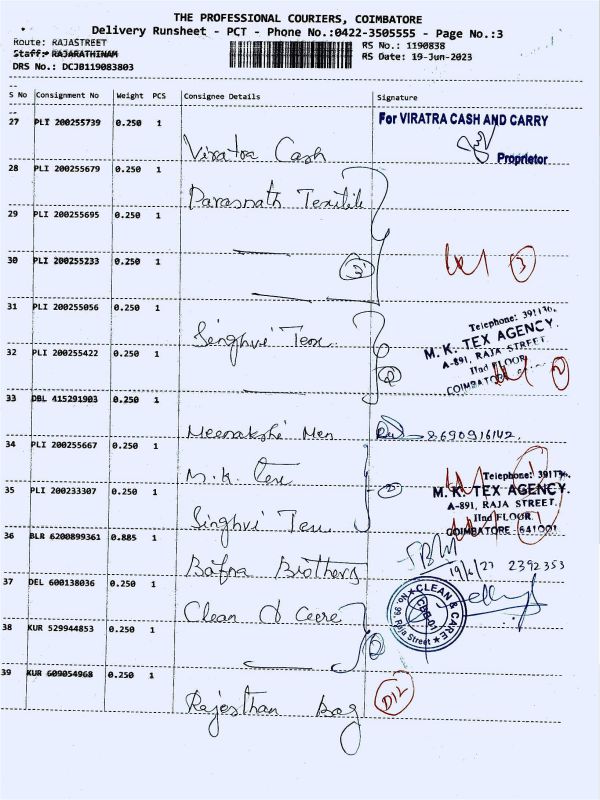 THE PROFESSIONAL COURIERS, COIMBATORE
Delivery Runsheet - PCT - Phone No.:0422-3505555 - Page No.:3
Route: RAJASTREET
RS No.: 1190838
Staff: RAJARATHINAM
RS Date: 19-Jun-2023
DRS No.: DCJ0119083803
S No Consignment No Weight PCS Consignee Details Signature
27 PLI 200255739 0.250 1
For VIRATRA CASH AND CARRY
Viratra Cash
Proprietor
28 PLI 200255679 0.250 1
Parasnath Textile
29 PLI 200255695 0.250 1
30 PLI 200255233 0.250 1
3
3
31 PLI 200255056 0.250 1
Singhvi Tex
Telephone: 391136,
M. K. TEX AGENCY.
A-891, RAJA STREET
IInd FLOOR
COIMBATORE
32 PLI 200255422 0.250 1
2
2
33 DBL 415291903 0.250 1
Meenakshi Men
8690916142
34 PLI 200255667 0.250 1
M.K. Tex
Telephone: 391136,
M. K. TEX AGENCY.
A-891, RAJA STREET.
IInd FLOOR
COIMBATORE - 641001
35 PLI 200233307 0.250 1
2
Singhvi Tex
36 BLR 6200899361 0.885 1
Bafna Brothers
2392353
37 DEL 600138036 0.250 1
Clean & Care
CLEAN & CARE
CBE-01
No. 99, Raja Street
38 KUR 529944853 0.250 1
2
39 KUR 609054968 0.250 1
Rajasthan Bag
D12